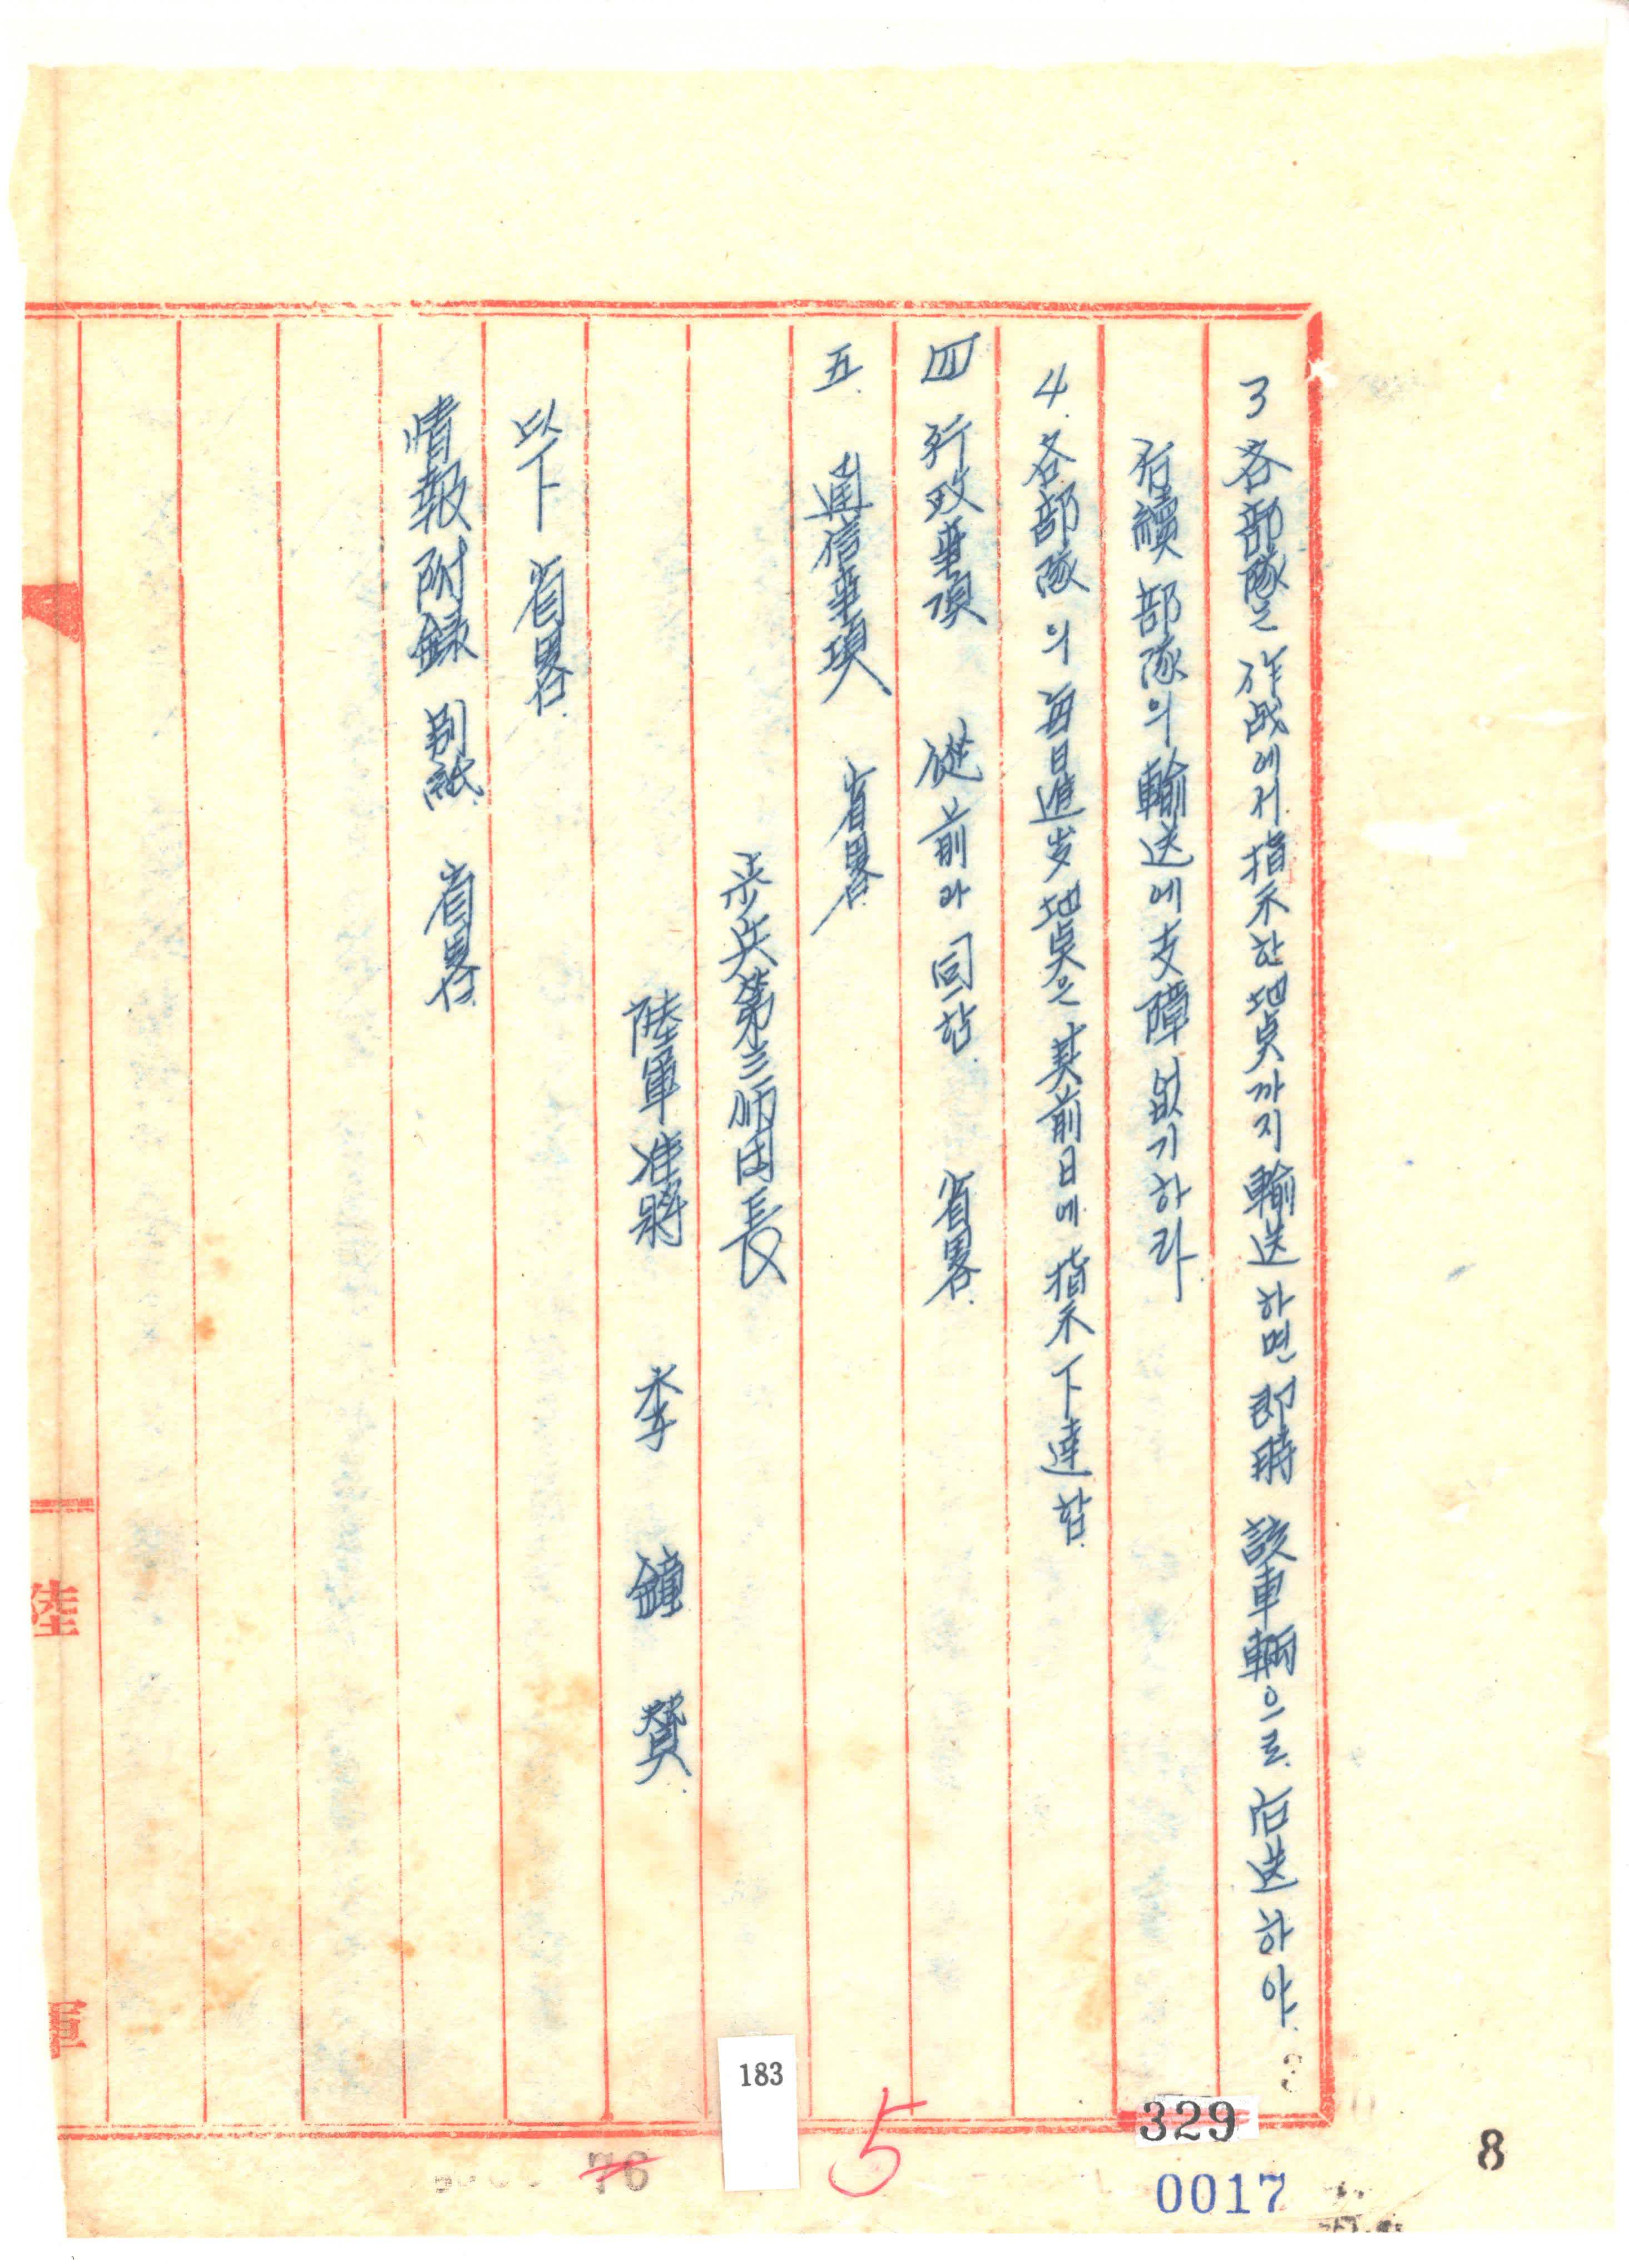 3 各部隊는 作战에서 指示한 地点까지 輸送하면 即時 該車輌으로 后送하야
后續部隊의 輸送에 支障없기하라
4. 各部隊의 每日進岁地点은 其前日에 指示下達함.
四 行政事項 從前과 同함. 省畧.
五. 通信事項 省畧.
步兵第三師团長
陸軍准將 李鐘贊.
以下省畧.
情報附録 別紙. 省畧.
陸
軍
183
5
329
76
0017
8